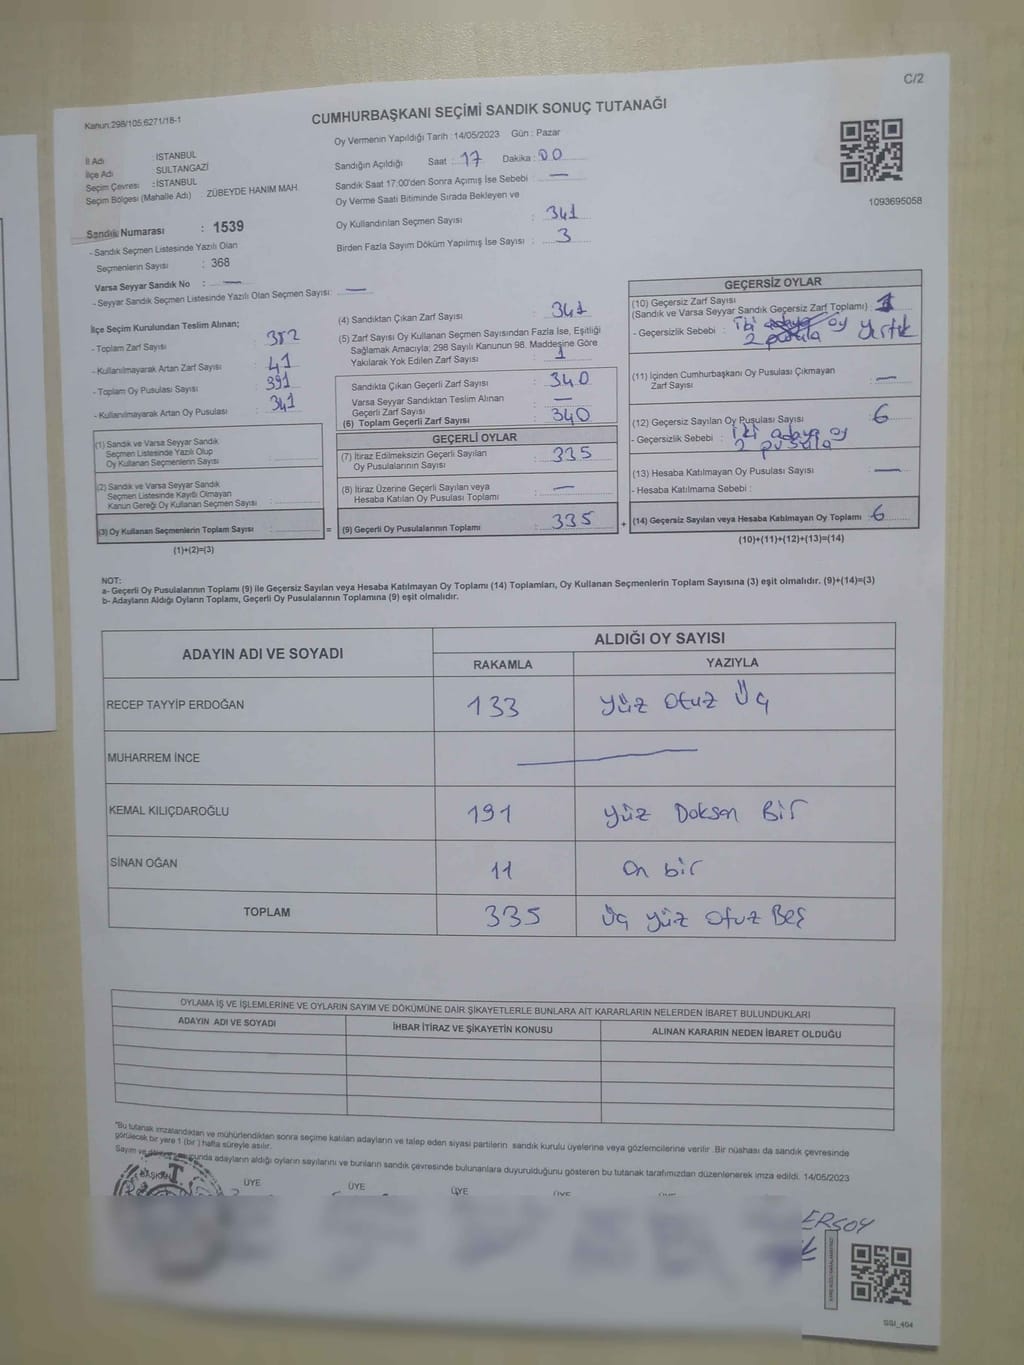 C/2
Kanun:298/105;6271/18-1
CUMHURBAŞKANI SEÇİMİ SANDIK SONUÇ TUTANAĞI
Oy Vermenin Yapıldığı Tarih : 14/05/2023 Gün : Pazar
İl Adı : İSTANBUL
İlçe Adı SULTANGAZİ
Seçim Çevresi : İSTANBUL
Seçim Bölgesi (Mahalle Adı) : ZÜBEYDE HANIM MAH.
Sandık Numarası : 1539
- Sandık Seçmen Listesinde Yazılı Olan
Seçmenlerin Sayısı : 368
Varsa Seyyar Sandık No : —
- Seyyar Sandık Seçmen Listesinde Yazılı Olan Seçmen Sayısı: —
Sandığın Açıldığı Saat : 17 Dakika : 00
Sandık Saat 17:00'den Sonra Açımış İse Sebebi : —
Oy Verme Saati Bitiminde Sırada Bekleyen ve
Oy Kullandırılan Seçmen Sayısı : 341
Birden Fazla Sayım Döküm Yapılmış İse Sayısı : 3
1093695058
İlçe Seçim Kurulundan Teslim Alınan;
- Toplam Zarf Sayısı : 382
- Kullanılmayarak Artan Zarf Sayısı : 41
- Toplam Oy Pusulası Sayısı : 391
- Kullanılmayarak Artan Oy Pusulası : 341
(1) Sandık ve Varsa Seyyar Sandık
Seçmen Listesinde Yazılı Olup
Oy Kullanan Seçmenlerin Sayısı :
(2) Sandık ve Varsa Seyyar Sandık
Seçmen Listesinde Kayıtlı Olmayan
Kanun Gereği Oy Kullanan Seçmen Sayısı :
(3) Oy Kullanan Seçmenlerin Toplam Sayısı : =
(1)+(2)=(3)
(4) Sandıktan Çıkan Zarf Sayısı : 341
(5) Zarf Sayısı Oy Kullanan Seçmen Sayısından Fazla İse, Eşitliği
Sağlamak Amacıyla; 298 Sayılı Kanunun 98. Maddesine Göre
Yakılarak Yok Edilen Zarf Sayısı : 1
Sandıkta Çıkan Geçerli Zarf Sayısı : 340
Varsa Seyyar Sandıktan Teslim Alınan
Geçerli Zarf Sayısı : —
(6) Toplam Geçerli Zarf Sayısı : 340
GEÇERLİ OYLAR
(7) İtiraz Edilmeksizin Geçerli Sayılan
Oy Pusulalarının Sayısı : 335
(8) İtiraz Üzerine Geçerli Sayılan veya
Hesaba Katılan Oy Pusulası Toplamı : —
(9) Geçerli Oy Pusulalarının Toplamı : 335 +
GEÇERSİZ OYLAR
(10) Geçersiz Zarf Sayısı
(Sandık ve Varsa Seyyar Sandık Geçersiz Zarf Toplamı) :
- Geçersizlik Sebebi : iki adaya oy
2 pusula yırtık
(11) İçinden Cumhurbaşkanı Oy Pusulası Çıkmayan
Zarf Sayısı : —
(12) Geçersiz Sayılan Oy Pusulası Sayısı : 6
- Geçersizlik Sebebi : iki adaya oy
2 pusula
(13) Hesaba Katılmayan Oy Pusulası Sayısı : —
- Hesaba Katılmama Sebebi :
(14) Geçersiz Sayılan veya Hesaba Katılmayan Oy Toplamı : 6
(10)+(11)+(12)+(13)=(14)
NOT:
a- Geçerli Oy Pusulalarının Toplamı (9) ile Geçersiz Sayılan veya Hesaba Katılmayan Oy Toplamı (14) Toplamları, Oy Kullanan Seçmenlerin Toplam Sayısına (3) eşit olmalıdır. (9)+(14)=(3)
b- Adayların Aldığı Oyların Toplamı, Geçerli Oy Pusulalarının Toplamına (9) eşit olmalıdır.
ADAYIN ADI VE SOYADI ALDIĞI OY SAYISI
RAKAMLA YAZIYLA
RECEP TAYYİP ERDOĞAN 133 Yüz Otuz Üç
MUHARREM İNCE —
KEMAL KILIÇDAROĞLU 191 Yüz Doksan Bir
SİNAN OĞAN 11 On bir
TOPLAM 335 Üç Yüz Otuz Beş
OYLAMA İŞ VE İŞLEMLERİNE VE OYLARIN SAYIM VE DÖKÜMÜNE DAİR ŞİKAYETLERLE BUNLARA AİT KARARLARIN NELERDEN İBARET BULUNDUKLARI
ADAYIN ADI VE SOYADI İHBAR İTİRAZ VE ŞİKAYETİN KONUSU ALINAN KARARIN NEDEN İBARET OLDUĞU
*Bu tutanak imzalandıktan ve mühürlendikten sonra seçime katılan adayların ve talep eden siyasi partilerin sandık kurulu üyelerine veya gözlemcilerine verilir .Bir nüshası da sandık çevresinde
görülecek bir yere 1 (bir ) hafta süreyle asılır.
Sayım ve adayların aldığı oyların sayılarını ve bunların sandık çevresinde bulunanlara duyurulduğunu gösteren bu tutanak tarafımızdan düzenlenerek imza edildi. 14/05/2023
BAŞKAN ÜYE ÜYE ÜYE ÜYE
ERSOY
SSI_404